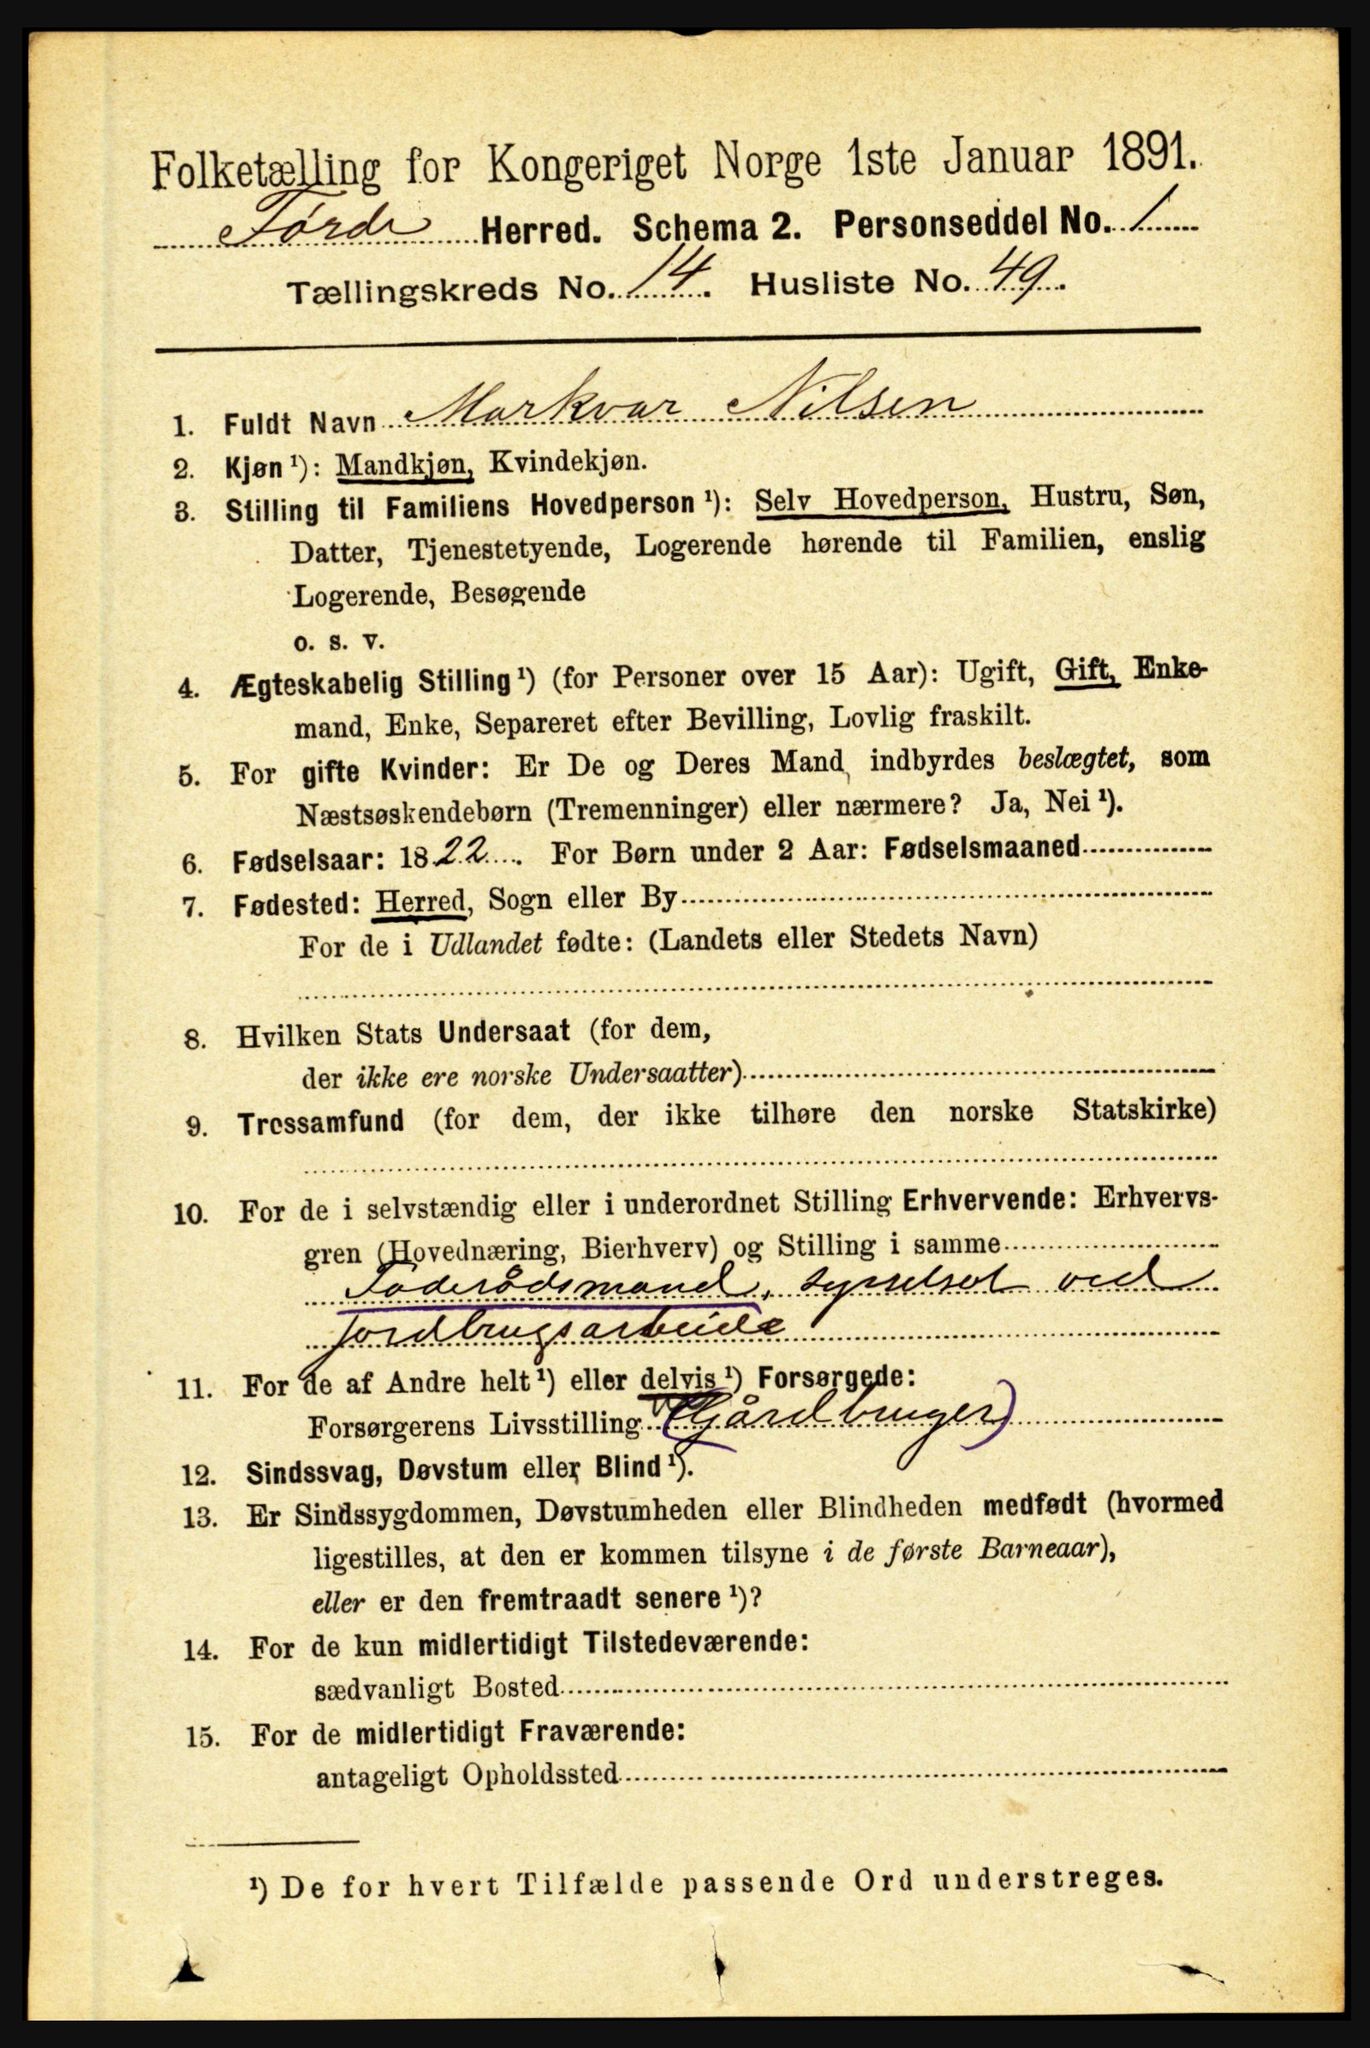 Folketælling for Kongeriget Norge 1ste Januar 1891.
Førde Herred. Schema 2. Personseddel No. 1
Tællingskreds No. 14. Husliste No. 49.
1. Fuldt Navn Markvar Nilsen
2. Kjøn ¹): Mandkjøn, Kvindekjøn.
3. Stilling til Familiens Hovedperson ¹): Selv Hovedperson, Hustru, Søn,
Datter, Tjenestetyende, Logerende hørende til Familien, enslig
Logerende, Besøgende
o. s. v.
4. Ægteskabelig Stilling ¹) (for Personer over 15 Aar): Ugift, Gift, Enke-
mand, Enke, Separeret efter Bevilling, Lovlig fraskilt.
5. For gifte Kvinder: Er De og Deres Mand indbyrdes beslægtet, som
Næstsøskendebørn (Tremenninger) eller nærmere? Ja, Nei ¹).
6. Fødselsaar: 1822. For Børn under 2 Aar: Fødselsmaaned
7. Fødested: Herred, Sogn eller By
For de i Udlandet fødte: (Landets eller Stedets Navn)
8. Hvilken Stats Undersaat (for dem,
der ikke ere norske Undersaatter)
9. Trossamfund (for dem, der ikke tilhøre den norske Statskirke)
10. For de i selvstændig eller i underordnet Stilling Erhvervende: Erhvervs-
gren (Hovednæring, Bierhverv) og Stilling i samme
Foderådsmand, sysselsat ved
jordbrugsarbeide
11. For de af Andre helt ¹) eller delvis ¹) Forsørgede:
Forsørgerens Livsstilling (Gårdbruger)
12. Sindssvag, Døvstum eller Blind ¹).
13. Er Sindssygdommen, Døvstumheden eller Blindheden medfødt (hvormed
ligestilles, at den er kommen tilsyne i de første Barneaar),
eller er den fremtraadt senere ¹)?
14. For de kun midlertidigt Tilstedeværende:
sædvanligt Bosted
15. For de midlertidigt Fraværende:
antageligt Opholdssted
¹) De for hvert Tilfælde passende Ord understreges.